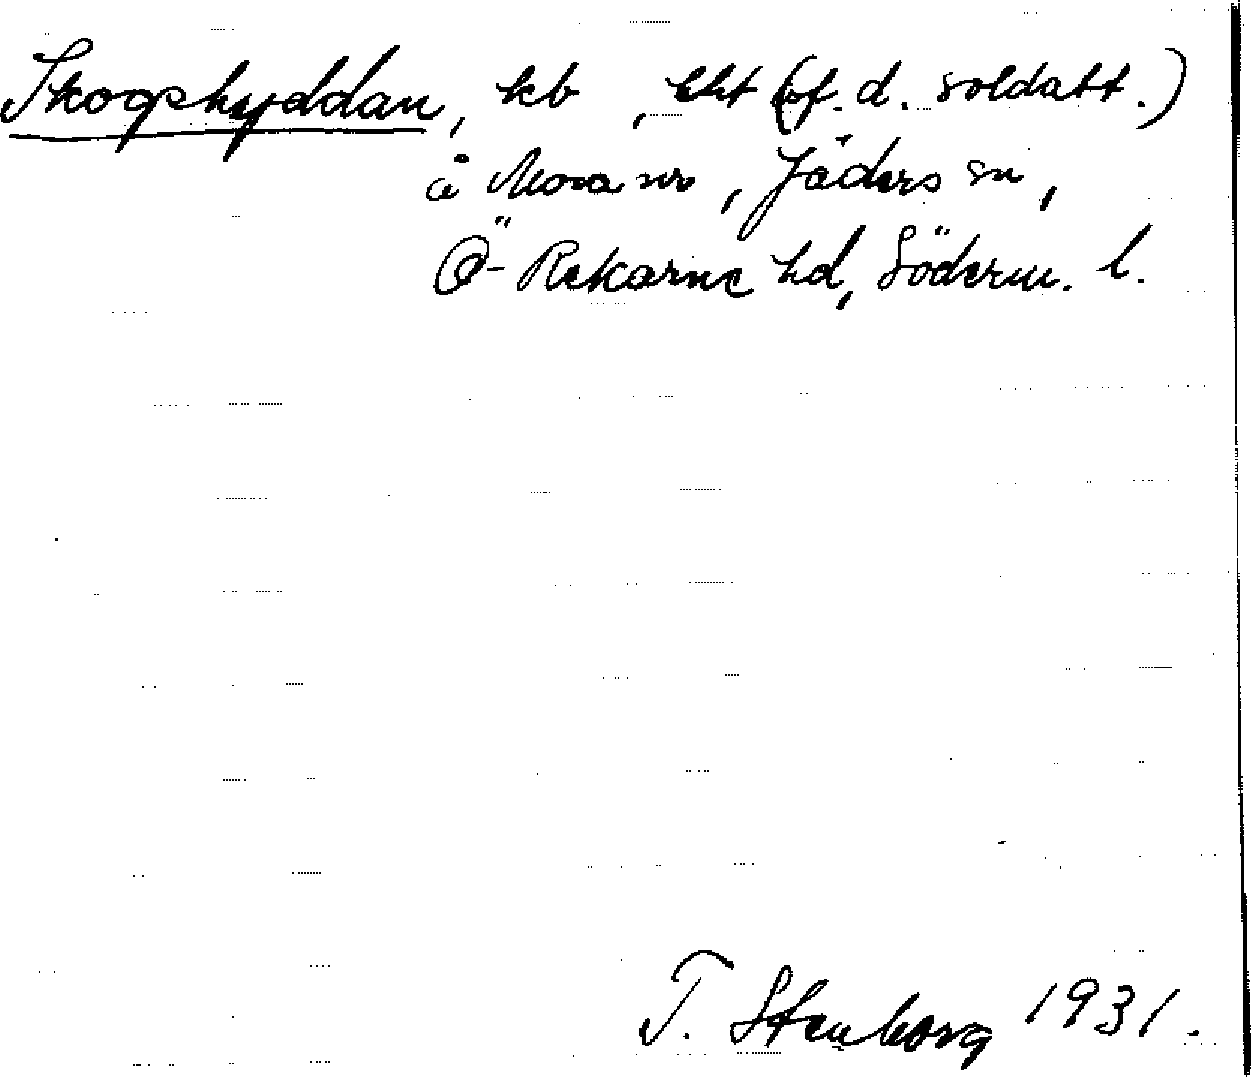 Skogshyddan, kb, lht (f. d. soldatt.)
å Mora nr, Jäders sn,
Ö-Rekarne hd, Söderm. l.
T. Stenborg 1931.